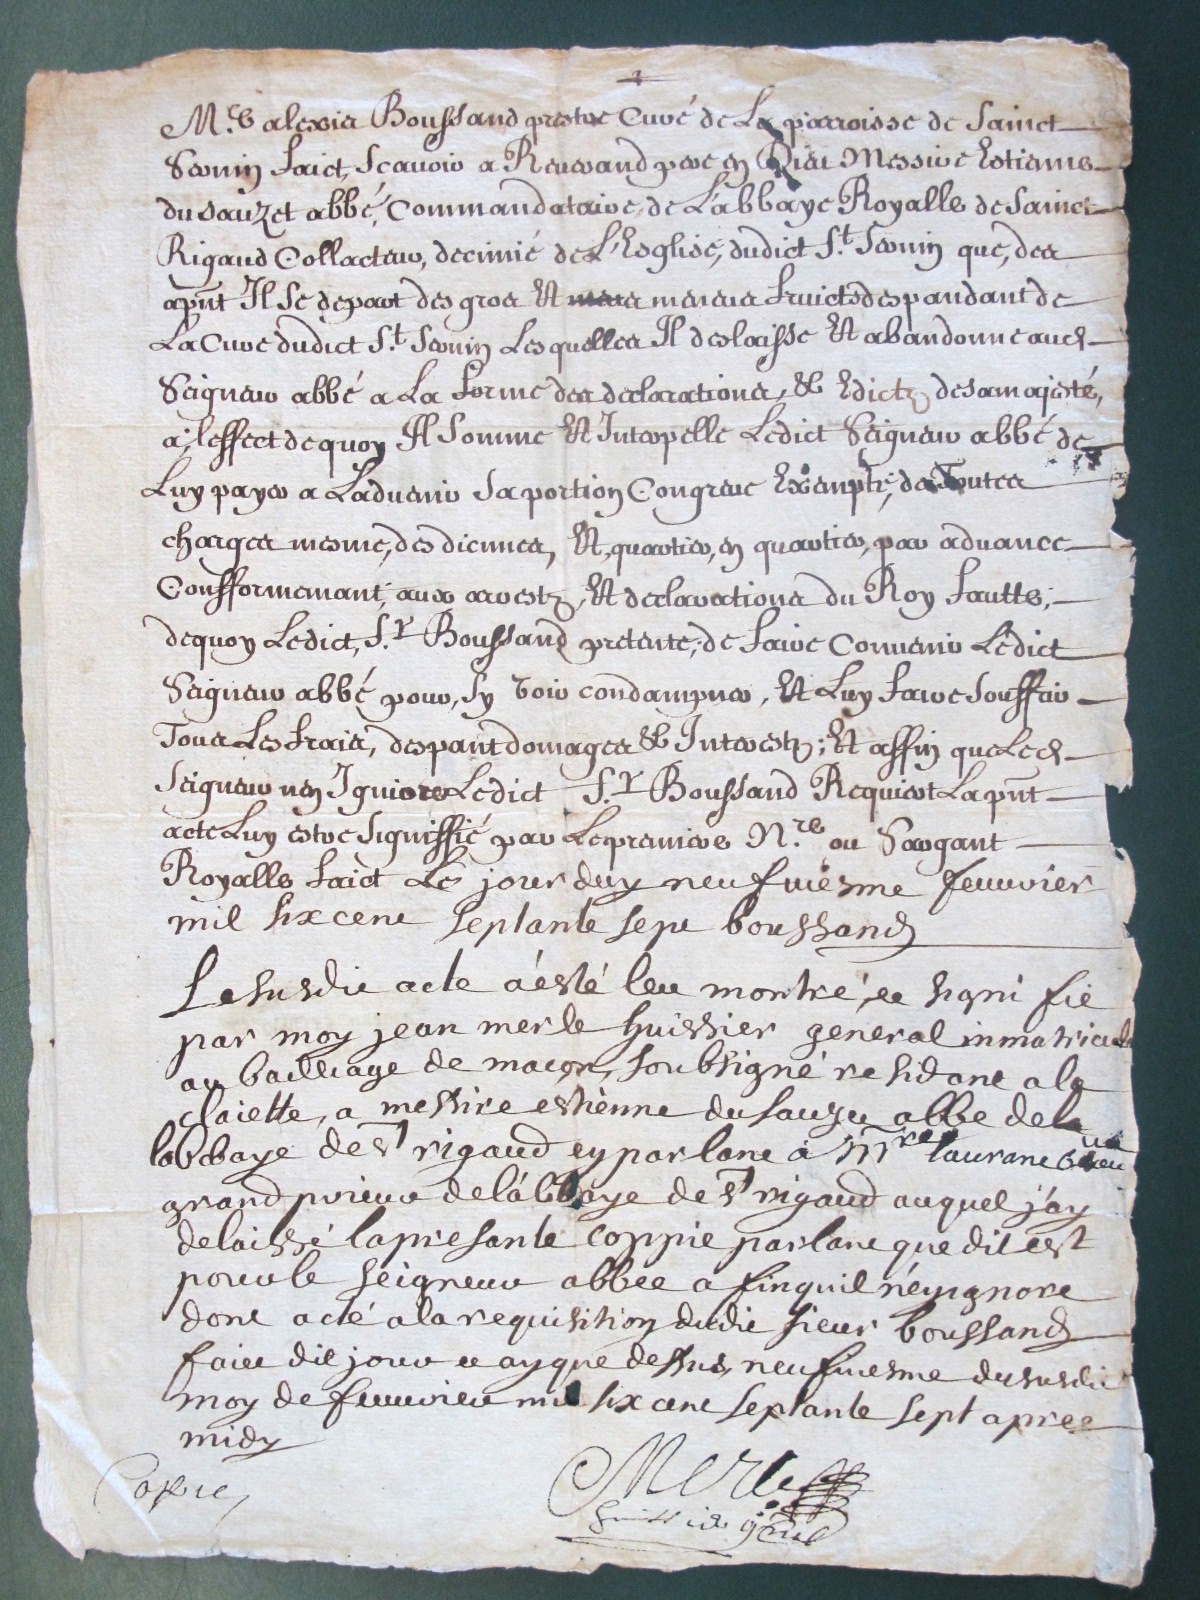 Mre alexis Boussand prestre Curé de La parroisse de Sainct
Sernin faict scavoir a Reverand pere en Dieu Messire Estienne
du sauzet abbé Commandataire de L'abbaye Royalle de Sainct
Rigaud Collacteur, decimié de L'Esglise dudict St. Sernin que, des
apnt Il se depart des gros Et menus fruicts despandant de
La Cure dudict St. Sernin Lesquelles Il deslaisse Et abandonne aud
Seigneur abbé a La forme des declarations, & Edictz de sa majesté,
a, leffect de quoy Il Somme Et Interpelle Ledict Seigneur abbé de
Luy payer a Ladvenir Sa portion Congrue Exempte, de Toutes
charges mesme, des diesmes, Et, quartier, en quartier, par advance
Consformemant, aux arrestz, Et declarations du Roy fautte,
dequoy Ledict, Sr Boussand pretente, de faire Convenir Ledict
Seigneur abbé pour, sy voir condampner, Et Luy faire souffrir
Tous Les fraix, despant domages & Interestz; Et affin que Led
Seigneur nen Igniore Ledict Sr Boussand Requiert La pnt
acte Luy estre Signiffié par Le premiere Nre ou Sargant
Royalle faict Le jour duy neufviesme febvrier
mil six cent septante sept boussand
Le susdit acte a esté leu montré, et signi fié
par moy jean merle huissier general inmatriculé
au bailliage de macon, soubsigné residant a la
claiette, a messire estienne du sauzet abbe de la
labbaye de st rigaud en parlant à Mre laurant
grand prieur de labbaye de st rigaud auquel j'ay
delaissé la presante coppie parlant que dit est
pour le seigneur abbée a fin quil n'en ignore
dont acté a la requisition dudit sieur boussand
faict dit jour et an que dessus, neufviesme du susdit
moy de febvrier mil six cent septante sept apres
midy
Copie
Merle
huissier gñral